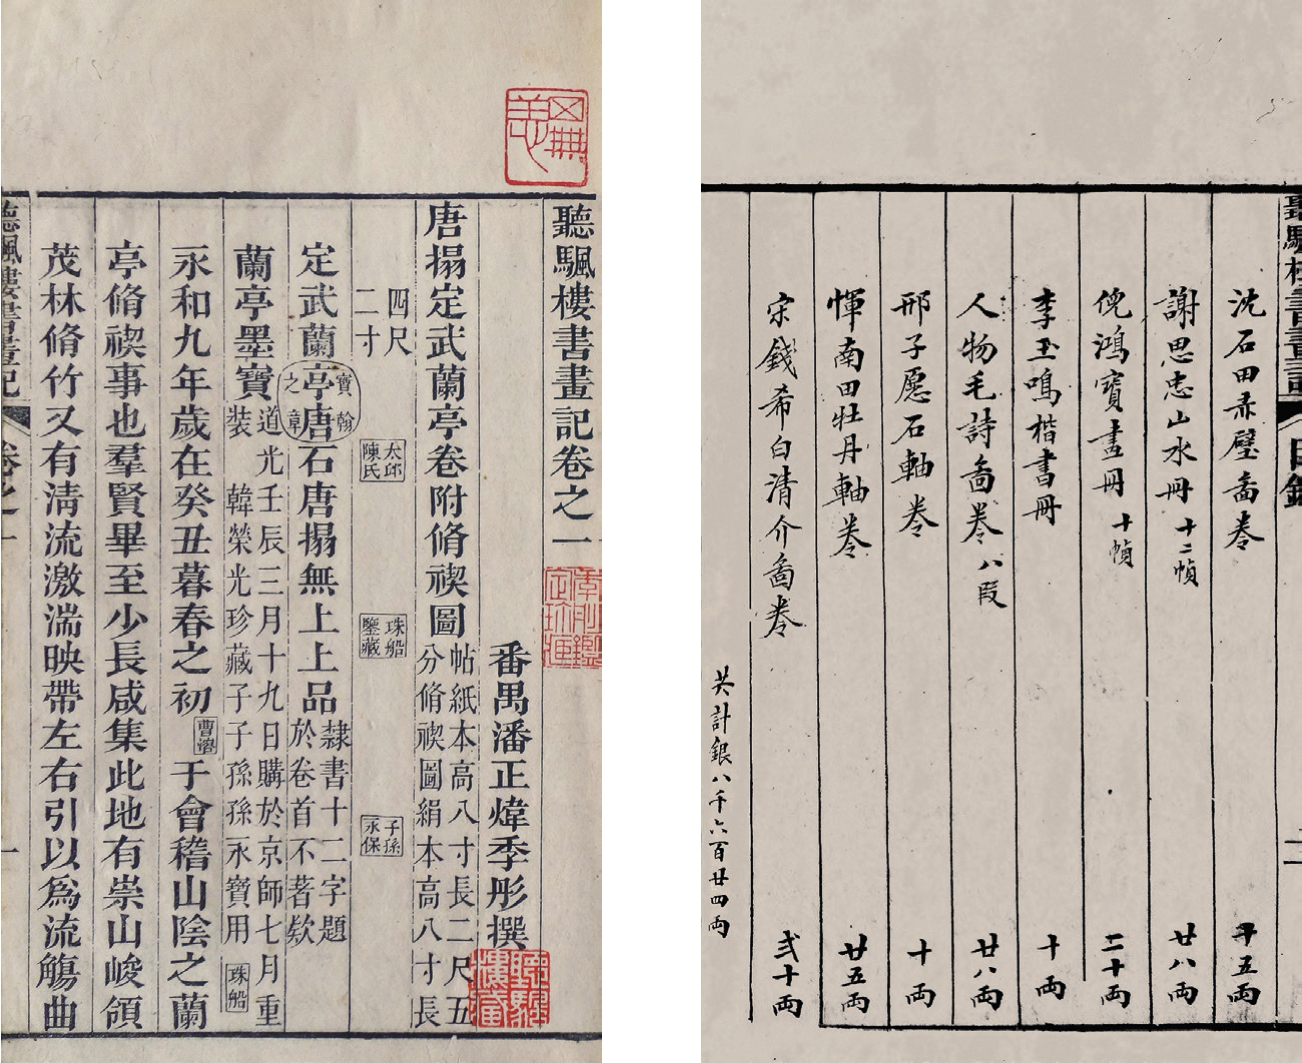 聽颿樓書畫記卷之一
番禺潘正煒季彤撰
唐搨定武蘭亭卷附脩禊圖
帖紙本高八寸長二尺五
分脩禊圖絹本高八寸長
四尺
二寸
太邱
陳氏
珠船
鑒藏
子孫
永保
定武蘭亭唐石唐搨無上上品
寶翰
之章
隸書十二字題
於卷首不著欵
蘭亭墨寶
道光壬辰三月十九日購於京師七月重
裝 韓榮光珍藏子子孫孫永寶用
珠船
永和九年歲在癸丑暮春之初
曹溶
于會稽山陰之蘭
亭脩禊事也羣賢畢至少長咸集此地有崇山峻領
茂林脩竹又有清流激湍映帶左右引以為流觴曲
聽颿樓書畫記
卷之一
一
聽颿樓書畫記
目錄
沈石田赤壁啚卷 五両
謝思忠山水冊 十二幀 廿八両
倪鴻寶畫冊 十幀 二十両
李玉鳴楷書冊 十両
人物毛詩啚卷 八段 廿八両
邢子愿石軸卷 十両
惲南田牡丹軸卷 廿五両
宋錢希白清介啚卷 弍十両
共計銀八千六百廿四両